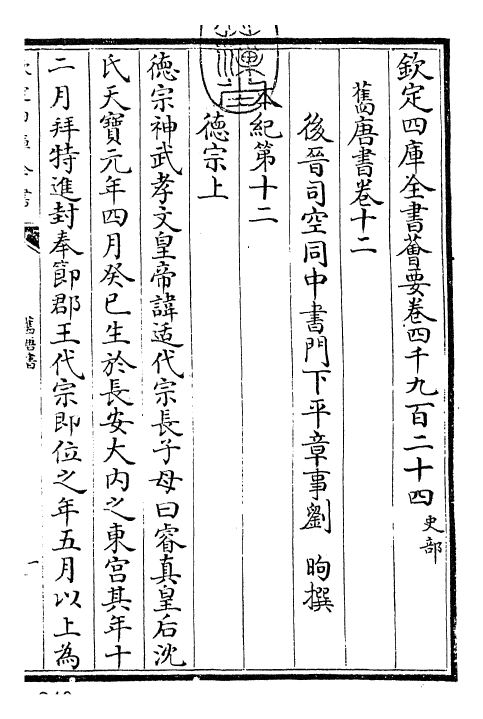 欽定四庫全書薈要卷四千九百二十四 史部
舊唐書卷十二
後晉司空同中書門下平章事劉 昫撰
本紀第十二
德宗上
德宗神武孝文皇帝諱适代宗長子母曰睿真皇后沈
氏天寶元年四月癸巳生於長安大內之東宮其年十
二月拜特進封奉節郡王代宗即位之年五月以上為
欽定四庫全書
舊唐書
一